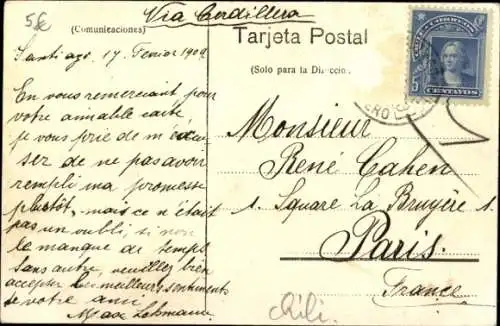 5€
Via Cordillera
(Comunicaciones)
Tarjeta Postal
(Solo para la Direccio
CORREOS
5 CENTAVOS
Santiago 17 Fevrier 1909.
En vous remerciant pour
votre aimable carte
je vous prie de m'excu
ser de ne pas avoir
rempli ma promesse
plustôt, mais ce n'était
pas un oubli, si non
le manque de temps.
Sans autre, veuillez bien
accepter les meilleurs sentiments
de votre ami
Max Lehmann
Monsieur
René Cahen
1. Square La Bruyère 1.
Paris.
France
Chili.